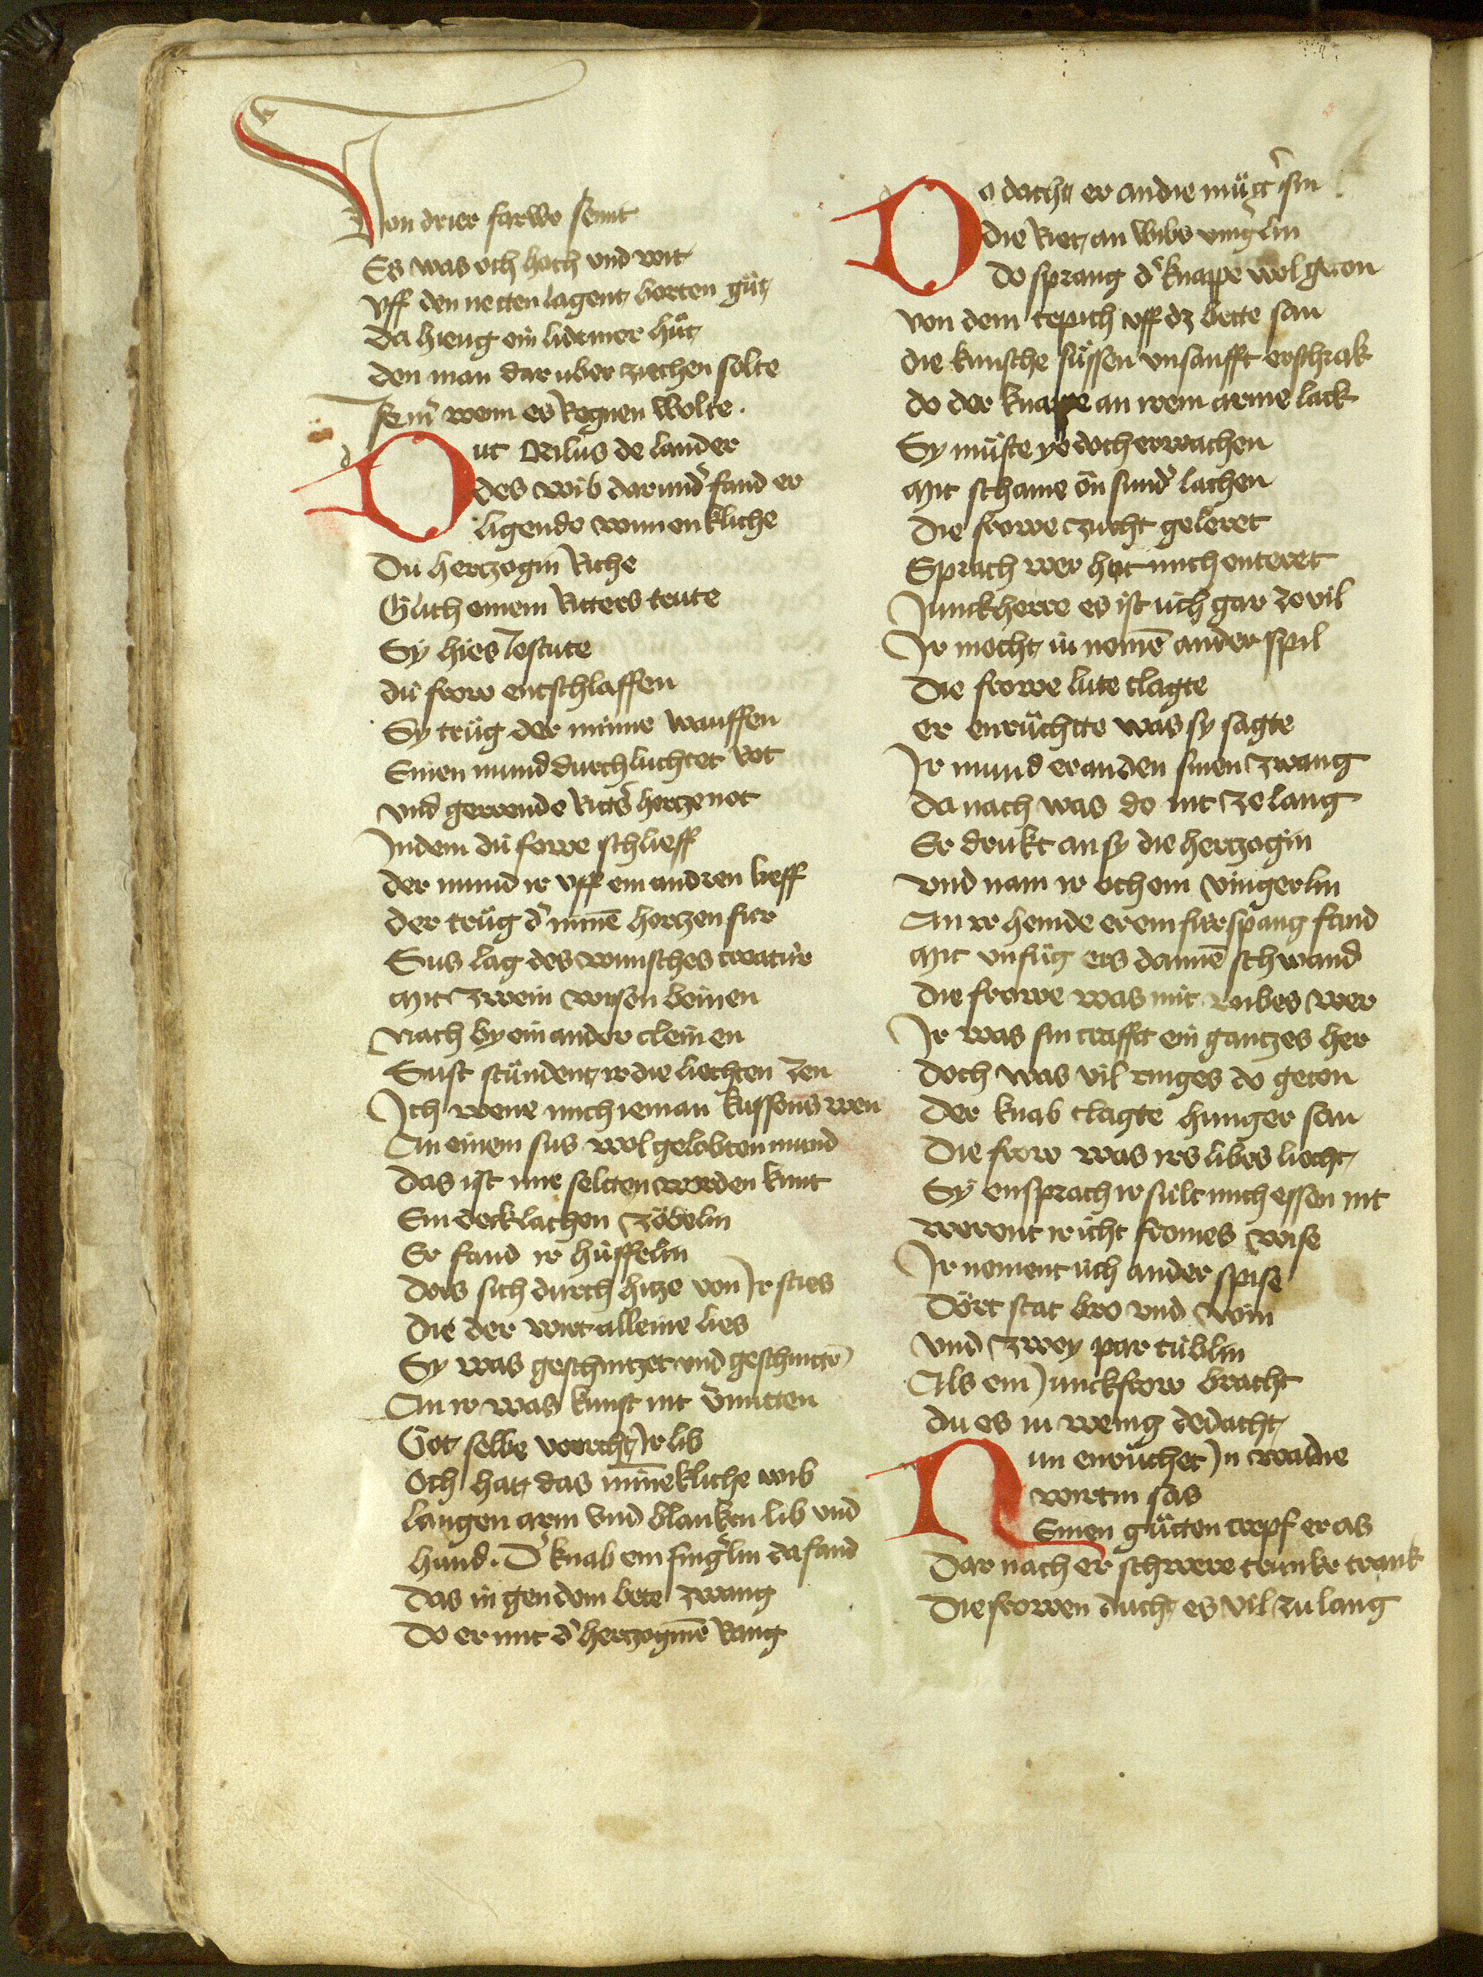 Von drier farwe semit
Es was och hoch und wit
vff den netten lagent borten gůt
da hieng ein lidriner hůt
den man dar uber ziechen solte
so er wenn es Regnen wolte.
Duc Orilus de lander
des wib darundˀ fand er
ligende wunnenkliche
Dú hertzogin Riche
Glich einem Ritters trute
Sy hies Jestute
dú frow entschlaffen
Sy trůg der minne wauffen
Einen mund durchluchtet rot
vnd gerende Rittˀs hertze not
Indem dú frowe schlieff
der mund ir vff ein andren lieff
der trůg dˀ mine͂ hertzen fúr
Sus lag des wunsches creatúr
Mit zwein wissen beinen
Nach by ein ander cleinen
Sust stůndent ir die liechten zen
Ich wene mich ieman kussens wen
An einem sus wol gelobten mund
das ist mir seltten worden kunt
Ein decklachen zóbelin
Er fand ir húffelin
Dos sich durch hitze von Ir sties
Die der wirt alleine lies
Sy was geschnitzet und geschnitte͂
An ir was kunst nit vˀmitten
Got selbe worcht Ir lib
Och hat das mine͂kliche wib
langen arm vnd blanken lib vnd
hand. Dˀ knab ein fingˀlin da fand
das in gen dem bete zwang
Do er mit dˀ hertzogine͂ Rang
Do dacht er an die můtˀ sin
die Riet an wibs vingˀlin
do sprang dˀ knappe wol geton
von dem tepich vff dz bette san
die kunsche sůssen unsanfft erschrak
do der knappe an irem arme lack
Sy můste ye doch erwachen
Mit schame on sundˀ lachen
Die frowe zucht geleret
Sprach wer hat mich enteret
Junckherre es ist úch gar ze vil
Ir mocht úu neme͂ ander spil
Die frowe lute clagte
er enrůchtte was sy sagte
Ir mund er an den sinen zwang
Da nach was do nit ze lang
Er drukt an sy die hertzogin
vnd nam ir och ein vingerlin
An ir hemde er ein fúrspang fand
Mit vnfůg ers danne͂ schwand
Die frowe was mit wibes wer
Ir was sin crafft ein gantzes her
doch was vil ringes do geton
Der knab clagte hunger san
Die frow was irs libes liecht
Sy ensprach ir sult mich essen nit
werent ir icht fromes wise
Ir nement úch ander spise
Dórt stat bro vnd win
vnd zwey par rúblin
Als ein Junckfrow bracht
du es in wenig dedacht
Nun enrůchet In wa die
wirtin sas
Einen gůtten cropf er as
Dar nach er schwere trunke trank
Die frowen ducht es vil zu lang